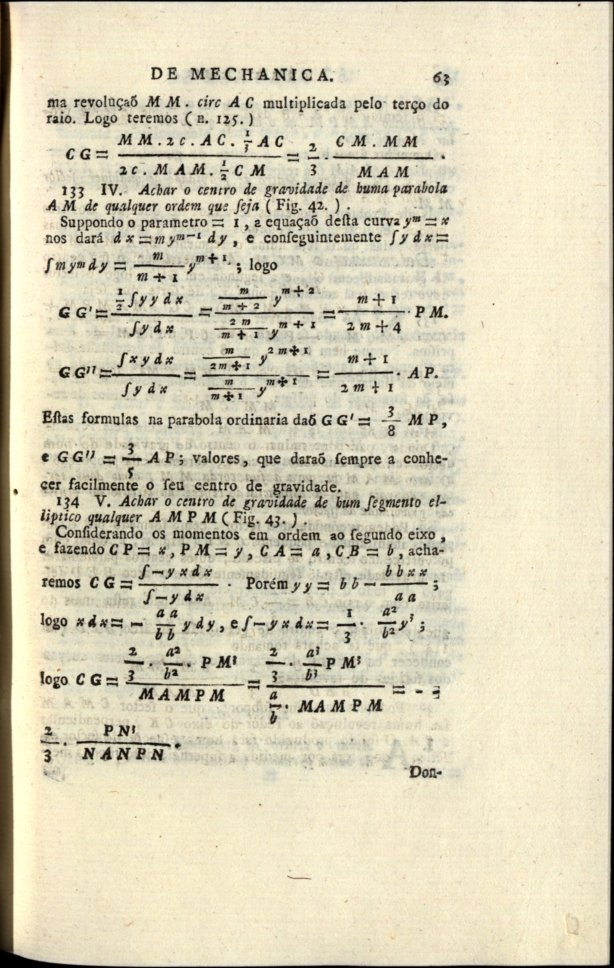 DE MECHANICA. 63
ma revoluçaõ M M . circ A C multiplicada pelo terço do
raio. Logo teremos ( n. 125. )
C G = \frac{M M . 2 c . A C . \frac{1}{3} A C}{2 c . M A M . \frac{1}{2} C M} = \frac{2}{3} . \frac{C M . M M}{M A M} .
133 IV. Achar o centro de gravidade de huma parabola
A M de qualquer ordem que ſeja ( Fig. 42. ) .
Suppondo o parametro = 1 , a equaçaõ deſta curva yᵐ = x
nos dará d x = m yᵐ⁻¹ d y , e conſeguintemente ſ y d x =
ſ m yᵐ d y = \frac{m}{m + 1} y^{m + 1} ; logo
G G' = \frac{\frac{1}{2} ſ y y d x}{ſ y d x} = \frac{\frac{m}{m + 2} y^{m + 2}}{\frac{2 m}{m + 1} y^{m + 1}} = \frac{m + 1}{2 m + 4} . P M.
G G'' = \frac{ſ x y d x}{ſ y d x} = \frac{\frac{m}{2 m + 1} y^{2 m + 1}}{\frac{m}{m + 1} y^{m + 1}} = \frac{m + 1}{2 m + 1} . A P.
Eſtas formulas na parabola ordinaria daõ G G' = \frac{3}{8} M P ,
e G G'' = \frac{3}{5} A P ; valores , que daraõ ſempre a conhe-
cer facilmente o ſeu centro de gravidade.
134 V. Achar o centro de gravidade de hum ſegmento el-
liptico qualquer A M P M ( Fig. 43. ) .
Conſiderando os momentos em ordem ao ſegundo eixo ,
e fazendo C P = x , P M = y , C A = a , C B = b , acha-
remos C G = \frac{ſ - y x d x}{ſ - y d x} . Porém y y = b b - \frac{b b x x}{a a} ;
logo x d x = - \frac{a a}{b b} y d y , e ſ - y x d x = \frac{1}{3} . \frac{a²}{b²} y³ ;
logo C G = \frac{\frac{2}{3} . \frac{a²}{b²} . P M³}{M A M P M} = \frac{\frac{2}{3} . \frac{a³}{b³} P M³}{\frac{a}{b} . M A M P M} = - -
\frac{2}{3} . \frac{P N³}{N A N P N} .
Don-